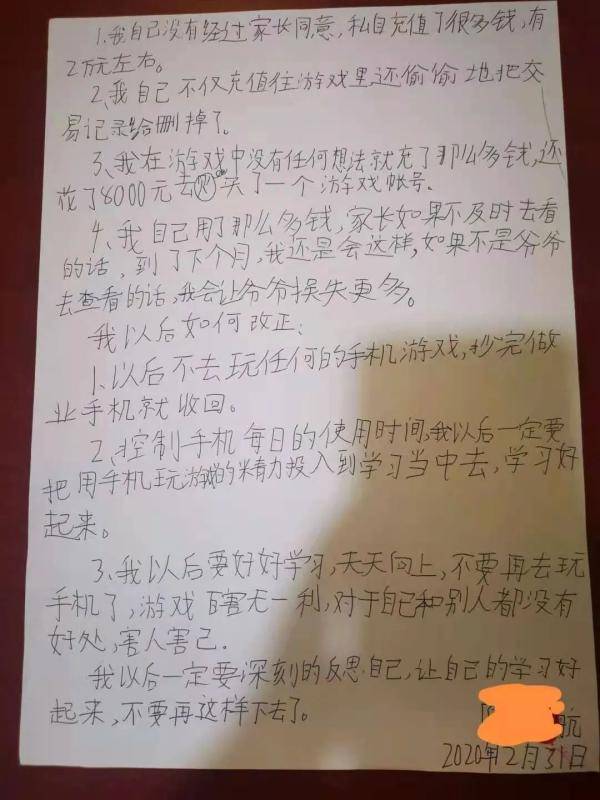 1.我自己没有经过家长同意,私自充值了很多钱,有
2万元左右。
2、我自己不仅充值住游戏里还偷偷地把交
易记录给删掉了。
3、我在游戏中没有任何想法就充了那么多钱,还
花了8000元去买了一个游戏帐号。
4、我自己用了那么多钱,家长如果不及时去看
的话,到了下个月,我还是会这样,如果不是爷爷
去查看的话,我会让爷爷损失更多。
我以后如何改正:
1.以后不去玩任何的手机游戏,抄完做
业手机就收回。
2、控制手机每日的使用时间,我以后一定要
把用手机玩游戏的精力投入到学习当中去,学习好
起来。
3、我以后要好好学习,天天向上,不要再去玩
手机了,游戏百害无一利,对于自己和别人都没有
好处,害人害己.
我以后一定要深刻的反思自己,让自己的学习好
起来,不要再这样下去了。
航
2020年2月31日